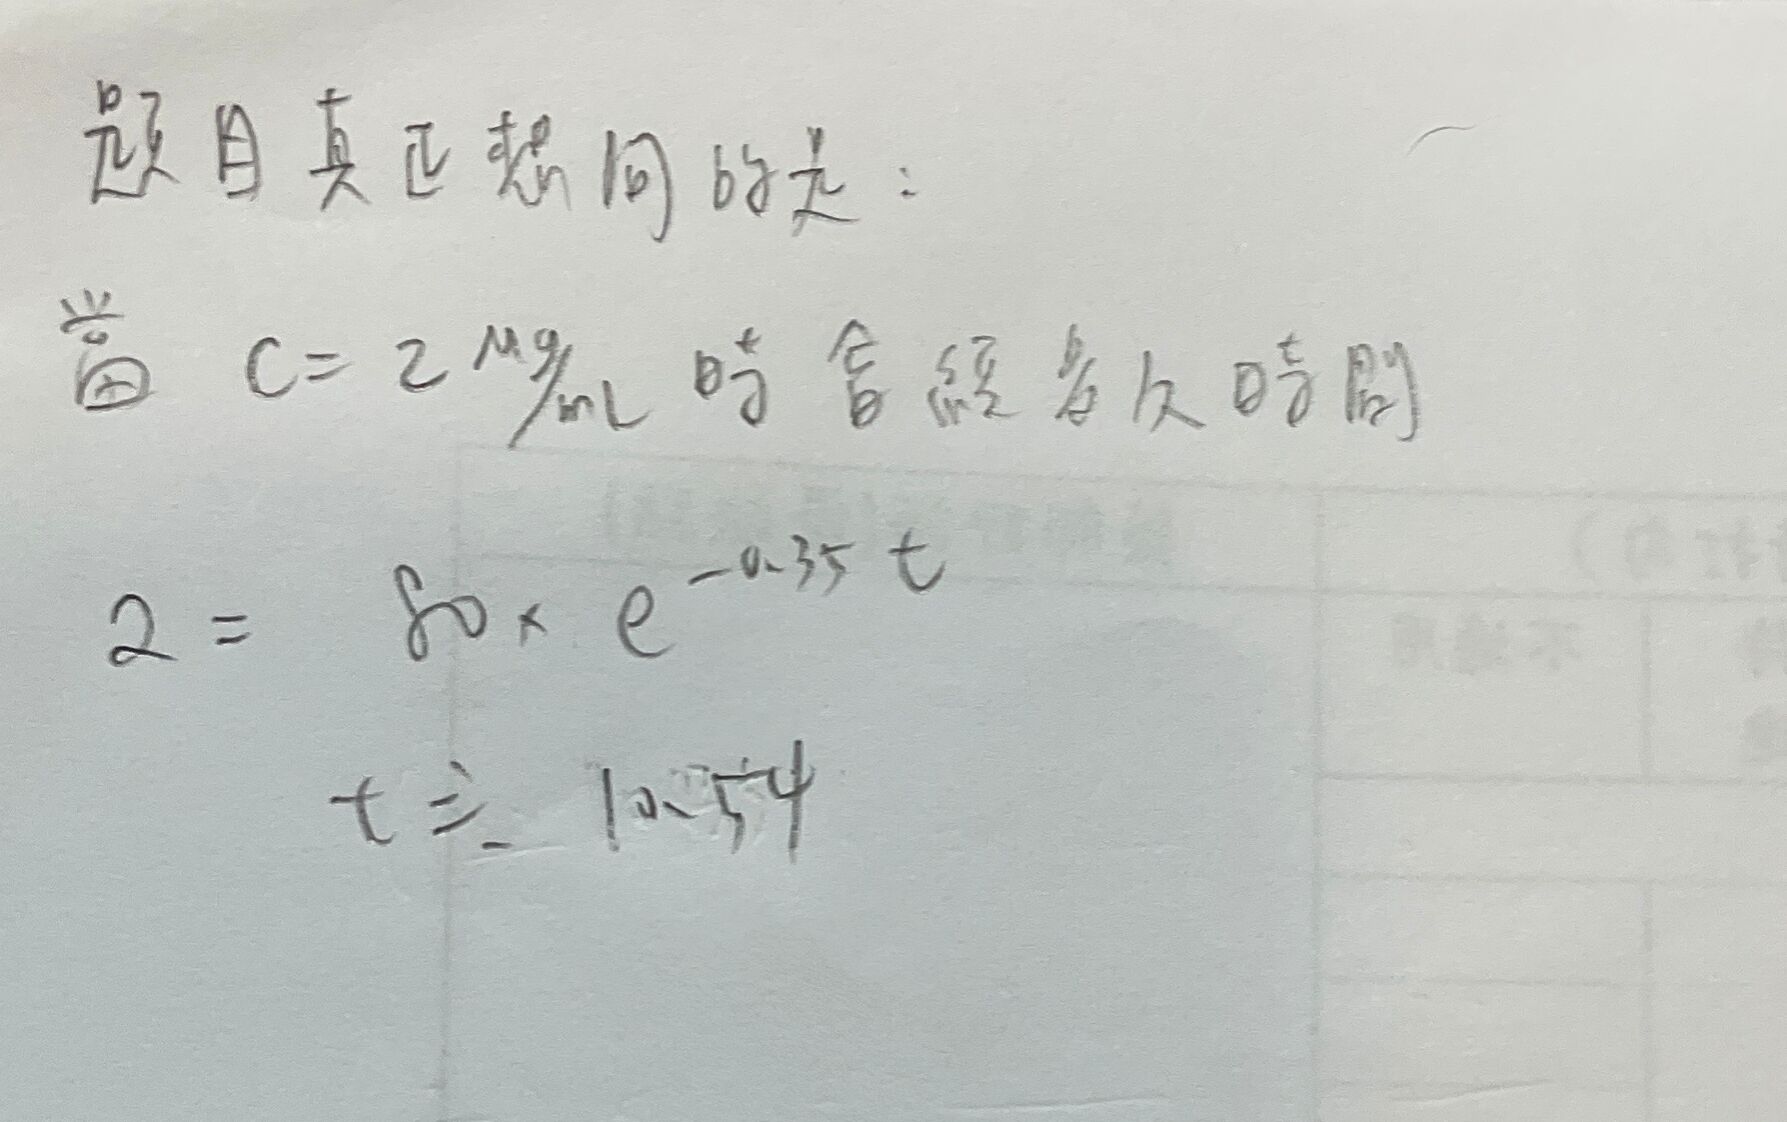 題目真正想問的是：
當 C = 2 μg/mL 時會經多久時間
2 = 80 × e^-0.35 t
t ≒ 10.54
不適用